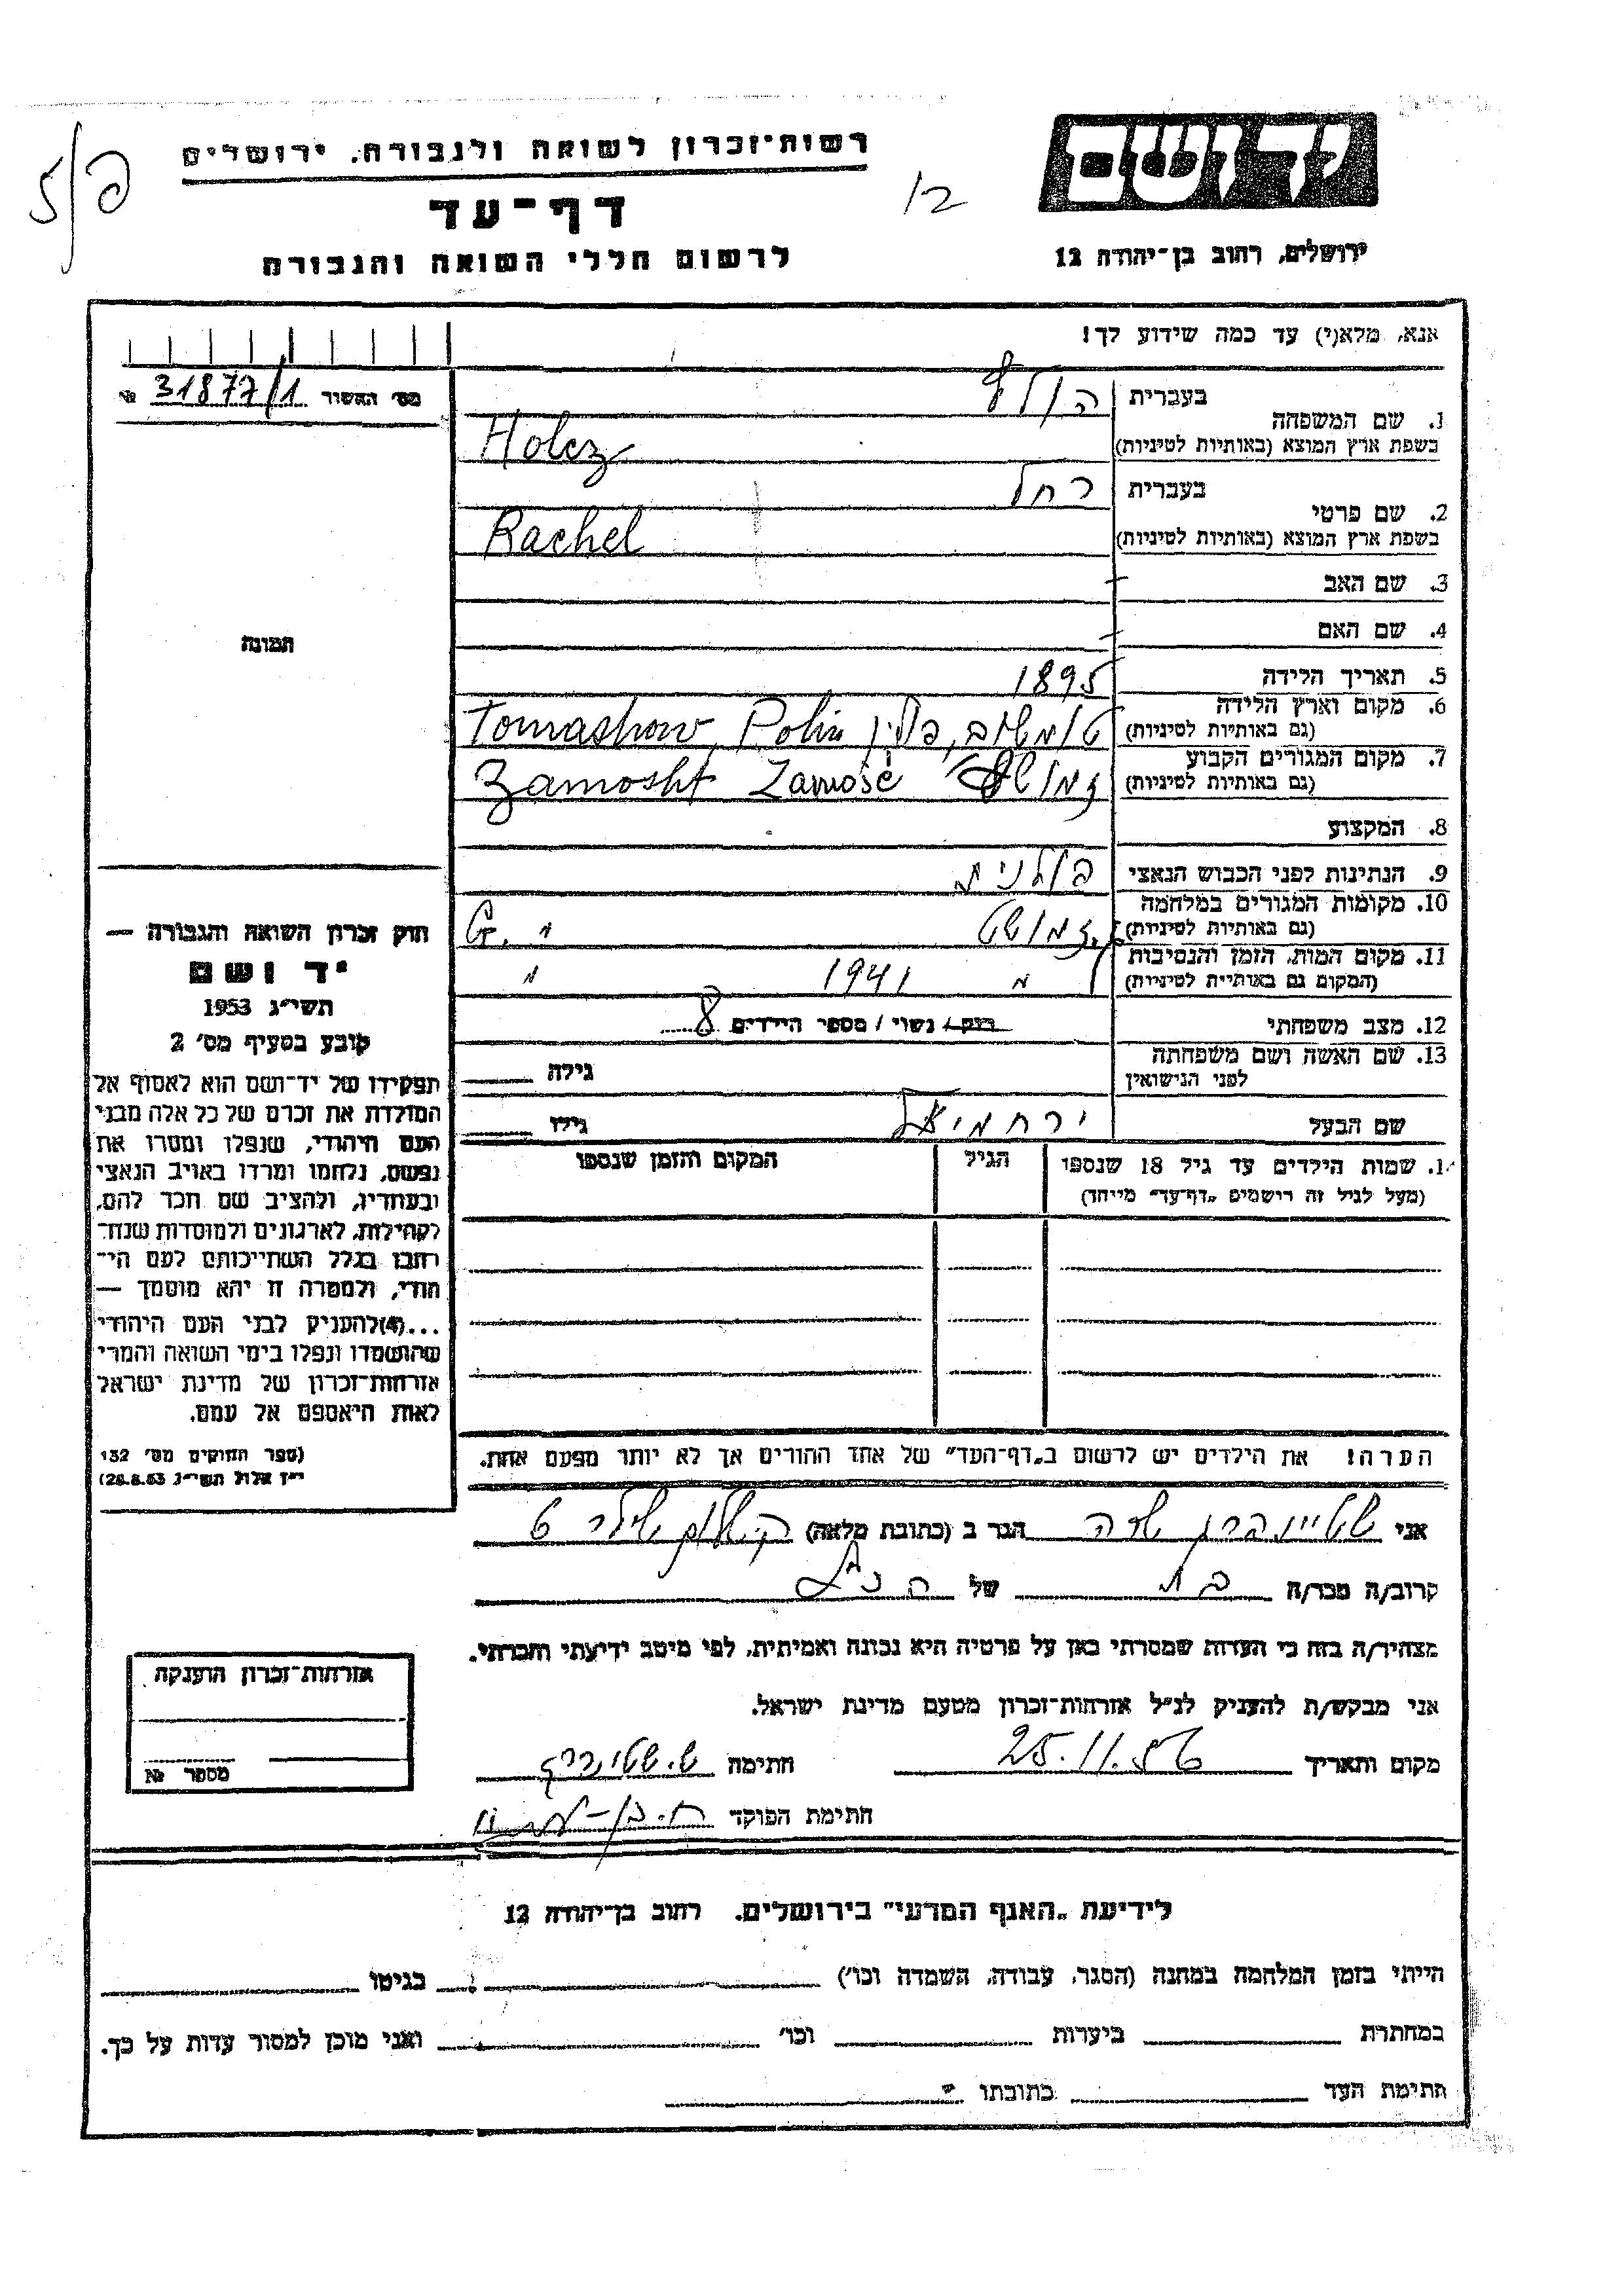 רשות־זכרון לשואה ולגבורה, ירושלים
דף־עד
לרשום חללי השואה והגבורה
12
יד ושם
ירושלים, רחוב בן־יהודה 12
אנא, מלא(י) עד כמה שידוע לך!
מס' האשור 31877/1 №
תמונה
1. שם המשפחה
בעברית הולץ
בשפת ארץ המוצא (באותיות לטיניות) Holcz
2. שם פרטי
בעברית רחל
בשפת ארץ המוצא (באותיות לטיניות) Rachel
3. שם האב
4. שם האם
5. תאריך הלידה 1895
6. מקום וארץ הלידה
(גם באותיות לטיניות) טומשוב, פולין Tomashow, Polin
7. מקום המגורים הקבוע
(גם באותיות לטיניות) Zamość Zamosht
8. המקצוע
9. הנתינות לפני הכבוש הנאצי פולנית
10. מקומות המגורים במלחמה
(גם באותיות לטיניות) זמושט " G.
11. מקום המות, הזמן והנסיבות
(המקום גם באותיות לטיניות) " 1941 "
12. מצב משפחתי רווק / נשוי / מספר הילדים 8
13. שם האשה ושם משפחתה
לפני הנישואין
גילה
שם הבעל ירחמיאל גילו
1. שמות הילדים עד גיל 18 שנספו
(מעל לגיל זה רושמים „דף־עד" מייחד)
הגיל
המקום והזמן שנספו
הערה! את הילדים יש לרשום ב„דף־העד" של אחד ההורים אך לא יותר מפעם אחת.
חוק זכרון השואה והגבורה —
יד ושם
תשי"ג 1953
קובע בסעיף מס' 2
תפקידו של יד־ושם הוא לאסוף אל
המולדת את זכרם של כל אלה מבני
העם היהודי, שנפלו ומסרו את
נפשם, נלחמו ומרדו באויב הנאצי
ובעוזריו, ולהציב שם וזכר להם,
לקהילות, לארגונים ולמוסדות שנח־
רבו בגלל השתייכותם לעם הי־
הודי, ולמטרה זו יהא מוסמך —
...(4)להעניק לבני העם היהודי
שהושמדו ונפלו בימי השואה והמרי
אזרחות־זכרון של מדינת ישראל
לאות היאספם אל עמם.
(ספר החוקים מס' 132
י"ז אלול תשי"ג 28.8.53)
אני שטיינברג שרה הגר ב (כתובת מלאה)
קרוב/ה מכר/ה בת של
מצהיר/ה בזה כי העדות שמסרתי כאן על פרטיה היא נכונה ואמיתית, לפי מיטב ידיעתי והכרתי.
אני מבקש/ת להעניק לנ"ל אזרחות־זכרון מטעם מדינת ישראל.
מקום ותאריך 25.11.56 חתימה ש. שטיינברג
חתימת הפוקד
אזרחות־זכרון הוענקה
מספר №
לידיעת „האגף המדעי" בירושלים, רחוב בן־יהודה 12
הייתי בזמן המלחמה במחנה (הסגר, עבודה, השמדה וכו') בגיטו
במחתרת ביערות וכו' ואני מוכן למסור עדות על כך.
חתימת העד כתובתו